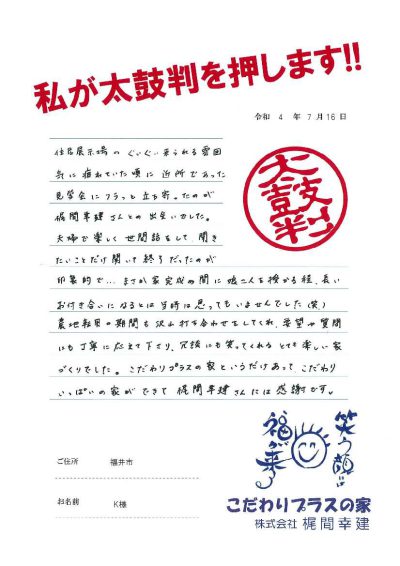 私が太鼓判を押します!!
令和 4 年 7月16日
住宅展示場の ぐいぐい来られる雰囲
気に疲れていた頃に 近所であった
見学会に フラッと立ち寄ったのが
梶間幸建さんとの出会いでした。
夫婦で楽しく 世間話をして、聞き
たいことだけ聞いて 終了だったのが
印象的で… まさか家完成の間に娘二人を授かる程、長い
お付き合いになるとは 当時は思ってもいませんでした(笑)
農地転用の期間も 沢山打ち合わせをしてくれ、要望や質問
にも丁寧に応えて下さり、冗談にも笑ってくれる とても楽しい家
づくりでした。こだわりプラスの家というだけあって こだわり
いっぱいの家ができて 梶間幸建さんには感謝です。
太鼓判
ご住所 福井市
お名前 K様
笑う顔には
福が来る
こだわりプラスの家
株式会社 梶間幸建